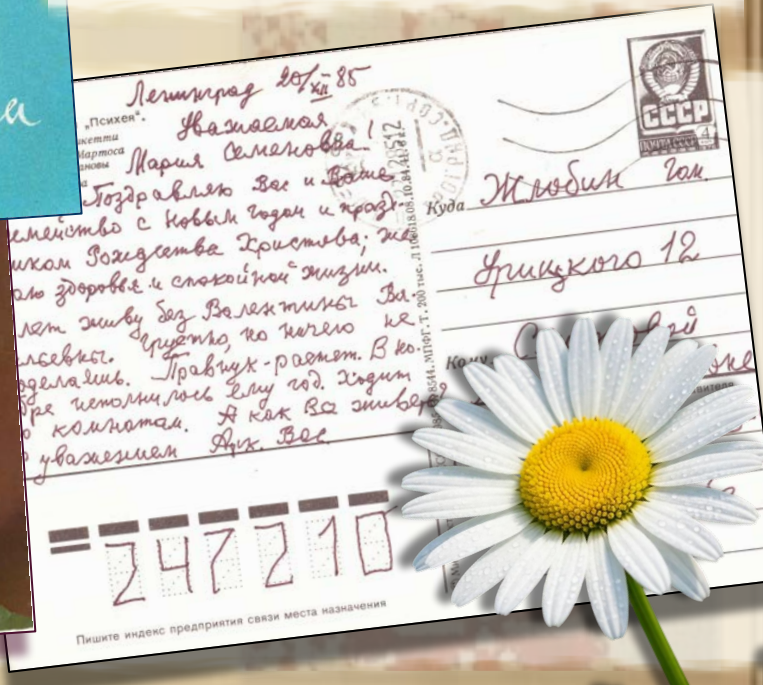 Ленинград 20/XII 85
„Психея“.
Уважаемая
Мартоса
Мария Семеновна!
Поздравляю Вас и Ваше
семейство с Новым годом и празд-
ником Рождества Христова; же
лаю здоровья и спокойной жизни.
лет живу без Валентины Ва.
Грустно, но ничего не
поделаешь. Правнук-растет. В но-
бре исполнилось ему год. Ходит
комнатам. А как Вы живете?
уважением Арк. Вас
СССР
ПОЧТА СССР 4
Куда Жлобин Гом.
Урицкого 12
Кому
247210
Пишите индекс предприятия связи места назначения